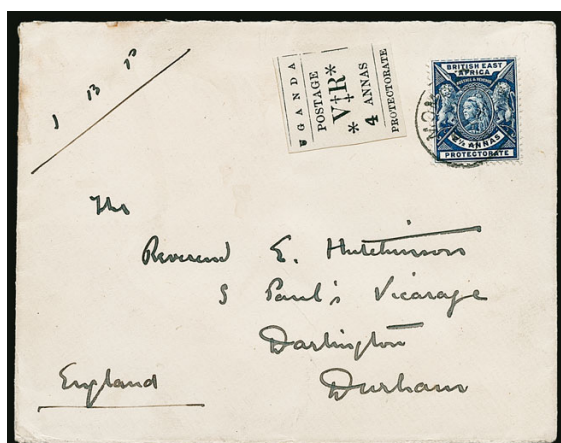 UGANDA
POSTAGE
* V‡R *
4 ANNAS
PROTECTORATE
BRITISH EAST
AFRICA
POSTAGE & REVENUE
2½ ANNAS
PROTECTORATE
MOM
The
Reverend E. Hutchinson
S Paul's Vicarage
Darlington
Durham
England